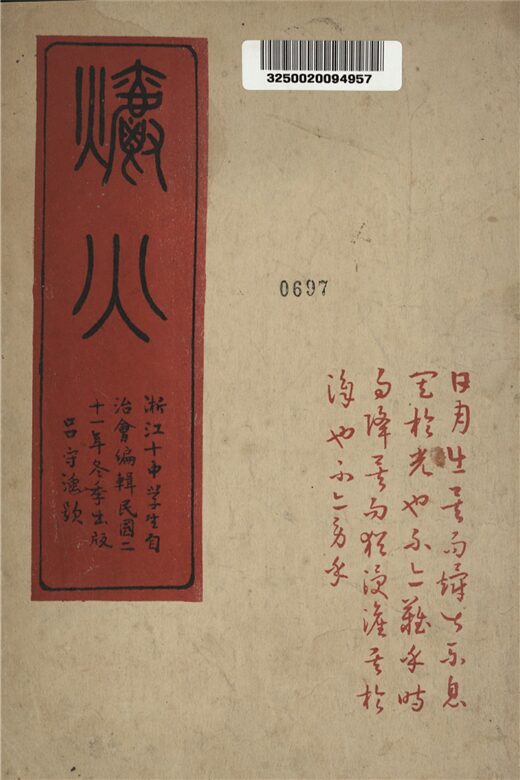 3250020094957
爝火
浙江十中学生自
治會編輯民國二
十一年冬季出版
呂守題
0697
日月出矣而爝火不息
其於光也不亦難乎時
雨降矣而猶浸灌其於
澤也不亦勞乎